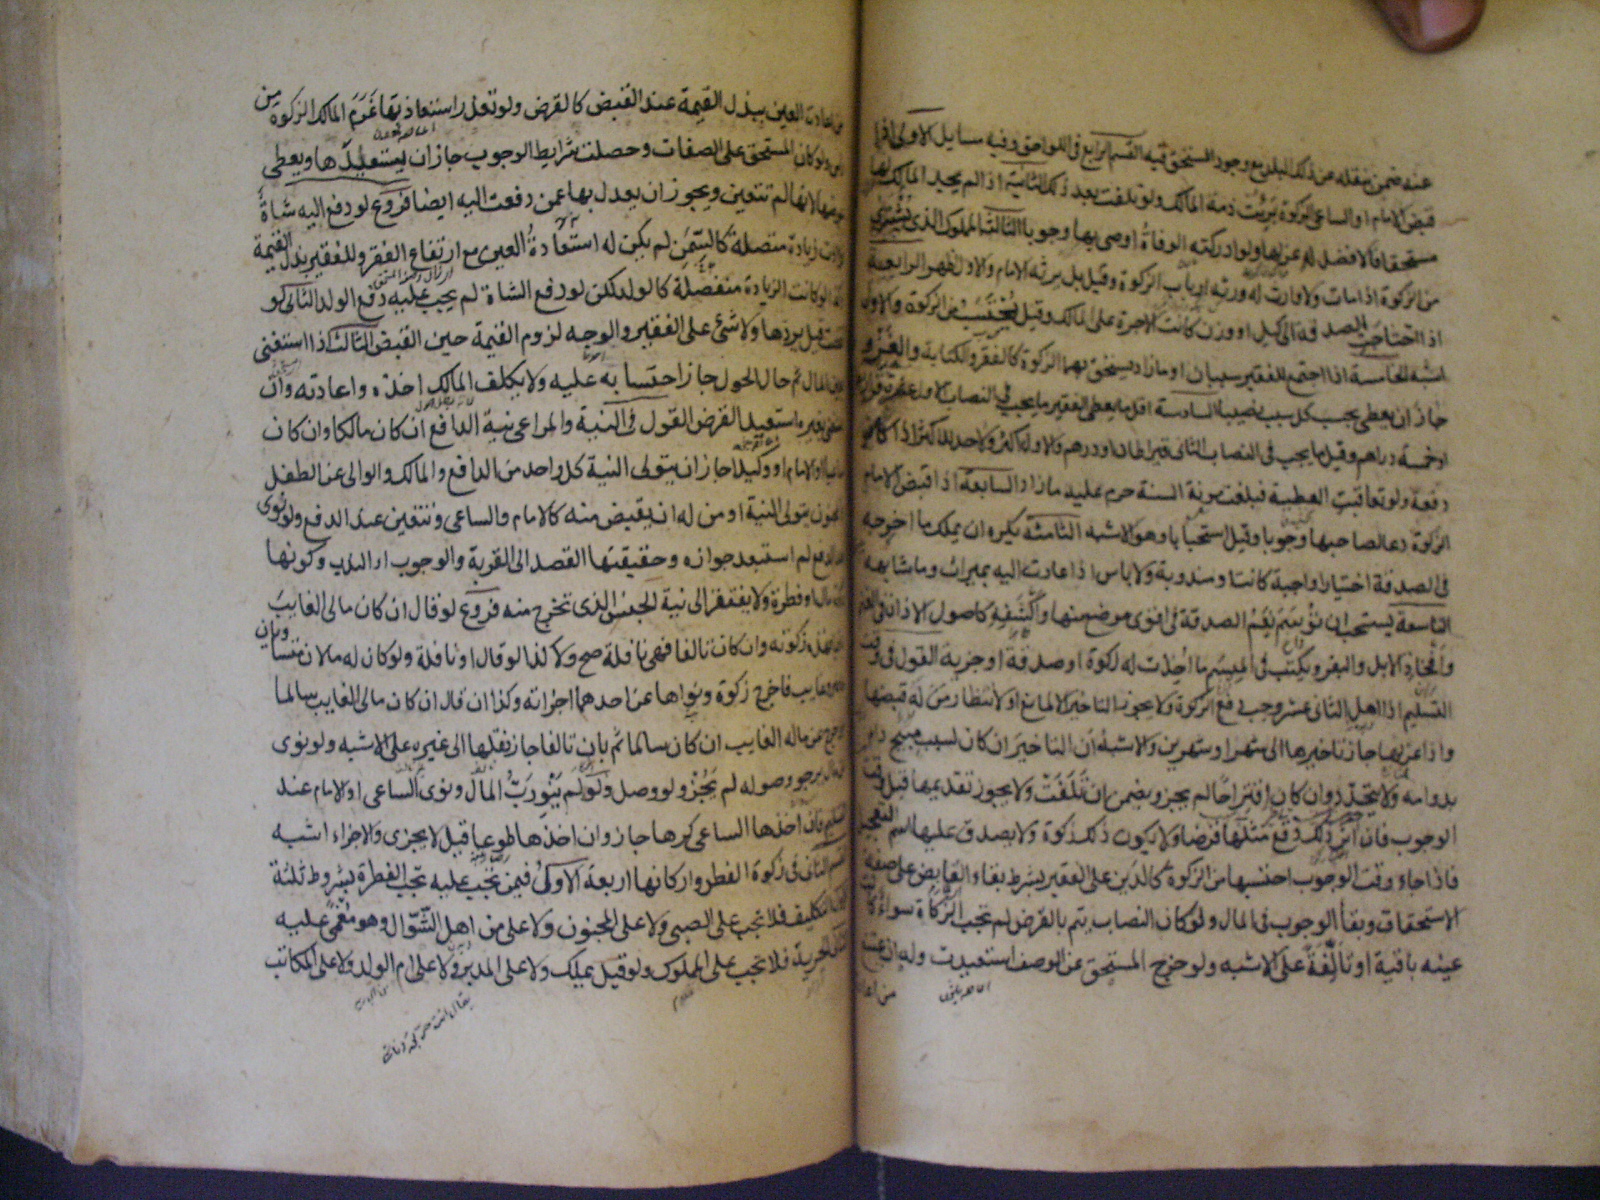 عنه ضمن بنقله عن ذلك البلد مع وجود المستحق فيه القسم الرابع في اللواحق وفيه مسايل الاولى اذا
قبض الامام او الساعي الزكوة بَرِئَت ذمة المالك ولو تلفت بعد ذلك الثانية اذا لم يجد المالك لها
مستحقا فالافضل له عزلها ولو ادركته الوفاةُ اوصى بها وجوبا الثالثة المملوك الذي يُشْترَى
من الزكوة اذا مات ولا وارث له ورثه ارباب الزكوة وقيل بل يرثه الامام والاول اظهر الرابعة
اذا احتاجت الصدقة الى كيل او وزن كانت الاجرة على المالك وقيل يحتسب من الزكوة والاول
اشبه الخامسة اذا اجتمع للفقير سببان او ما زاد يستحق بهما الزكوة كالفقر والكتابة والغزو
جاز ان يعطى بحسب كل سبب نصيبا السادسة اقل ما يعطى الفقير ما يجب في النصاب الاول عشرة قراريط
او خمسة دراهم وقيل ما يجب في النصاب الثاني قيراطان او درهم والاول اكثر ولا حد للاكثر اذا كان
دفعة ولو تعاقبت العطية فبلغت مونة السنة حرم عليه ما زاد السابعة اذا قبض الامام
الزكوة دعا لصاحبها وجوبا وقيل استحبابا وهو الاشبه الثامنة يكره ان يملك ما اخرجه
في الصدقة اختيارا واجبة كانت او مندوبة ولا باس اذا عادت اليه بميراث وما شابهه
التاسعة يستحب ان يُوْسَمَ نَعَمُ الصدقة في اقوى موضع منها واكْشَفِهِ كاصول الاذان في الغنم
وافخاذِ الابل والبقر ويكتب في الميسم ما اُخِذَت له زكوة او صدقة او جزية القول في وقت
التسليم اذا اهل الثاني عشر وجب دفع الزكوة ولا يجوز التاخير الا لمانع او لانتظار من له قبضها
واذا عزلها جاز تاخيرها الى شهر او شهرين والاشبهُ اَن التاخيرَ ان كان لسبب مبيح دام
بدوامه ولا يتحدّد وان كان اقتراحًا لم يجز ويضمن اِن تَلَفَتْ ولا يجوز تقديمها قبل وقت
الوجوب فان اثر ذلك دفع مثلها قرضا ولا يكون ذلك زكوة ولا يصدق عليها اسم التعجيل
فاذا جاء وقت الوجوب احتسبها من الزكوة كالدَين على الفقير بشرط بقاء القابض على صفة
الاستحقاق وبقأ الوجوب في المال ولو كان النصاب يتم بالقرض لم تجب الزكاة سواءٌ كا
عينه باقية او تالفةً على الاشبه ولو خرج المستحق عن الوصف استعيدت وله ان يمتنع
من اعا
من اعادة العين ببذل القيمة عند القبض كالقرض ولو تعذر استعادتها غَرَمَ المالك الزكوة من
راس ولو كان المستحق على الصفات وحصلت شرايط الوجوب جاز ان يستعيدَها ويعطى
عوضها لانها لم تتعين ويجوز ان يعدل بها عمن دفعت اليه ايضا فروع لو دفع اليه شاةً
فزادت زيادة متصلة كالسِّمَن لم يكن له استعادةُ العين مع ارتفاع الفقر وللفقير بذل القيمة
وكذا لو كانت الزيادة منفصلة كالولد لكن لو دفع الشاة لم يجب عليه دفع الولد الثاني لو
نقصت قيل يردّها ولا شئ على الفقير والوجه لزوم القيمة حين القبض الثالث اذا استغنى
بعين المال ثم حال الحول جاز احتسابه عليه ولا يكلف المالك اخذه واعادته وان
استغنى بغيره استعيد القرض القول في النية والمراعى نية الدافع ان كان مالكا وان كان
ساعيا او الامام او وكيلا جاز ان يتولى النية كل واحد من الدافع والمالك والوالى عن الطفل
والمجنون يتولى النية او من له ان يقبض منه كالامام والساعي وتتعين عند الدفع ولو نوى
بعد الدفع لم استبعد جوازه وحقيقتها القصد الى القربة والوجوب او الندب وكونها
زكوة مال او فطرة ولا يفتقر الى نية الجنس الذي تخرج منه فروع لو قال ان كان مالي الغايب
باقيا فهذه زكوته وان كان تالفا فهي نافلة صح ولا كذا لو قال او نافلة ولو كان له مالان متساويان
حاضر وغايب فاخرج زكوة ونواها عن احدهما اجزاته وكذا ان قال ان كان مالي الغايب سالما
ولو اخرج عن ماله الغايب ان كان سالما ثم بان تالفا جاز نقلها الى غيره على الاشبه ولو نوى
عن مال يرجو وصوله لم يَجُز ولو وصل ولو لم يَنْوِ ربُّ المال ونوى الساعي او الامام عند
التسليم فان اخذها الساعي كرها جاز وان اخذها طوعا قيل لا يجزى والاجزاء اشبه
القسم الثاني في زكوة الفطر واركانها اربعة الاول فيمن تجب عليه تجب الفطرة بشروط ثلثة
الاول التكليف فلا تجب على الصبي ولا على المجنون ولا على من اهل الشّوّال وهو مُغمًى عليه
الثاني الحرية فلا تجب على المملوك ولو قيل يملك ولا على المدبّر ولا على ام الولد ولا على المكاتب